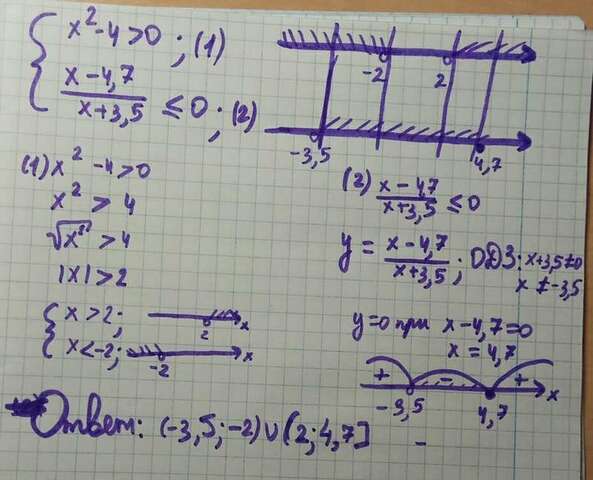 x²-4>0; (1)
x-4,7
x+3,5 ≤0; (2)
-2 2
-3,5 4,7
(1) x² -4>0
x² > 4
√x² > 4
|x| > 2
x>2; 2 x
x<-2; -2 x
(2) x-4,7
x+3,5 ≤0
y = x-4,7
x+3,5 ; ОДЗ: x+3,5≠0
x ≠-3,5
y=0 при x-4,7=0
x=4,7
+ - +
-3,5 4,7 x
Ответ: (-3,5;-2)∪(2;4,7]